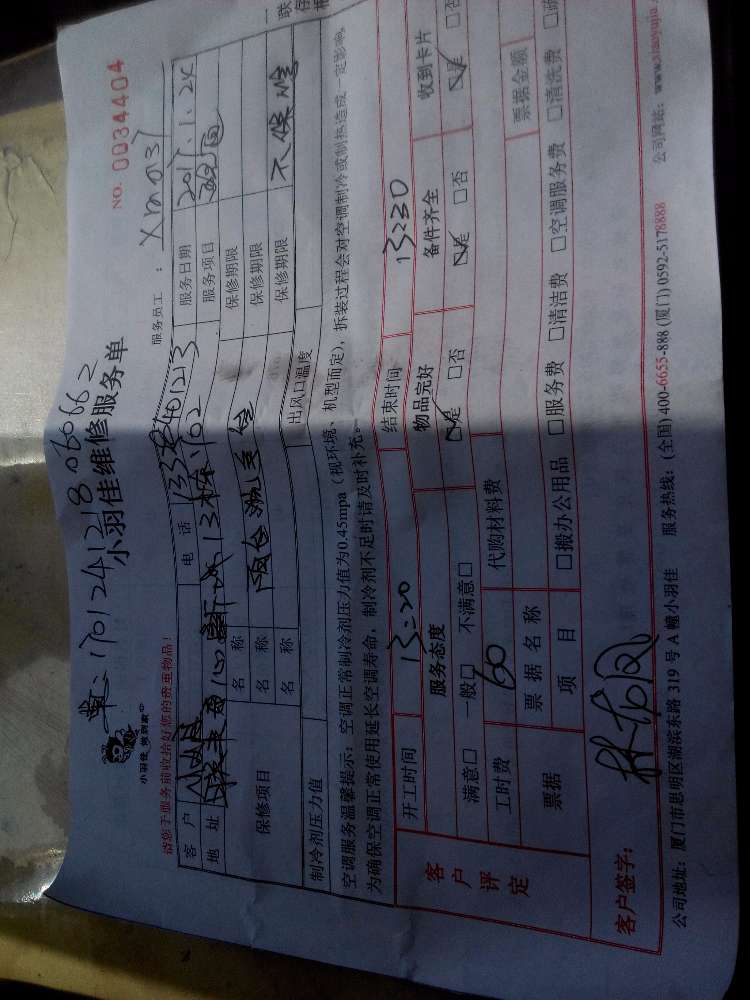 NO. 0034404
170124121806066 2
小羽佳维修服务单
小羽佳 做到家
请您于服务前收拾好您的贵重物品!
服务员工: Xm0037
客户 电话 服务日期 2017.1.24
地址 13栋1702 服务项目
保修项目 名称 保修期限
名称 保修期限
名称 保修期限 不保修
制冷剂压力值 出风口温度
空调服务温馨提示:空调正常制冷剂压力值为0.45mpa(视环境、机型而定),拆装过程会对空调制冷或制热造成一定影响,
为确保空调正常使用延长空调寿命,制冷剂不足时请及时补充。
客户评定
开工时间 13:20 结束时间 13:30
服务态度 物品完好 备件齐全 收到卡片
满意□ 一般□ 不满意□ 是 □否 是 □否 是 □否
工时费 60 代购材料费
票据 票据名称 票据金额
项目 □搬办公用品 □服务费 □清洁费 □空调服务费 □清洗费
客户签字:
公司地址:厦门市思明区湖滨东路 319 号 A 幢小羽佳 服务热线:(全国) 400-6655-888 (厦门) 0592-5178888 公司网站:www.xiaoyujia.